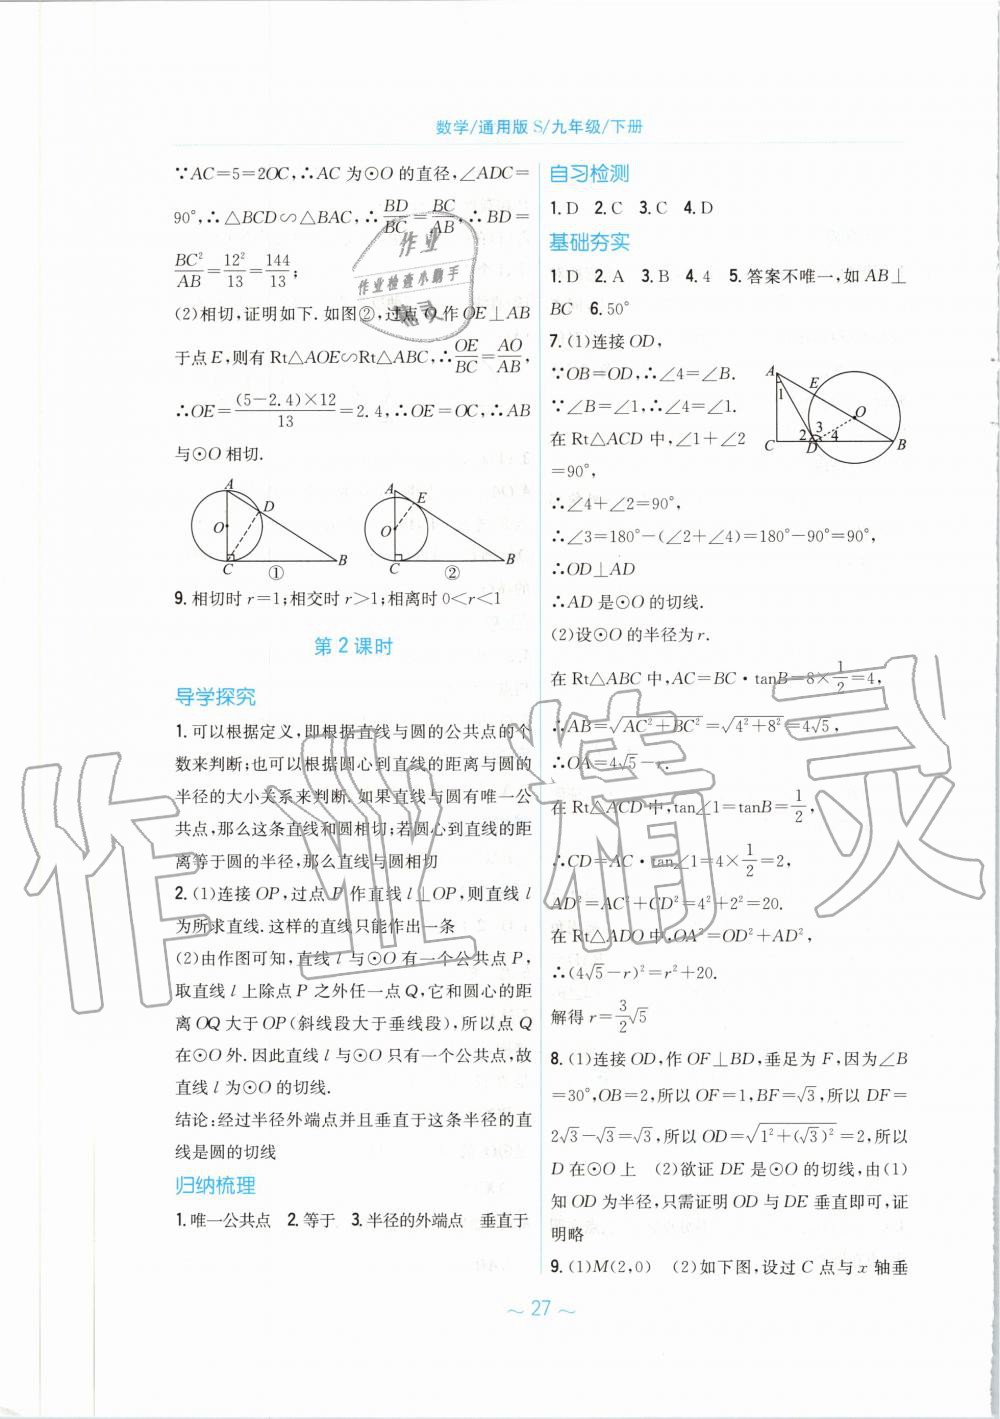 数学/通用版 S/九年级/下册
∵AC=5=2OC,∴AC 为⊙O 的直径,∠ADC=
90°,∴△BCD∽△BAC,∴BD/BC=BC/AB,∴BD=
BC²/AB=12²/13=144/13;
(2)相切,证明如下.如图②,过点 O 作 OE⊥AB
于点E,则有 Rt△AOE∽Rt△ABC,∴OE/BC=AO/AB,
∴OE=(5-2.4)×12/13=2.4,∴OE=OC,∴AB
与⊙O 相切.
A D O C B ①
A E O C B ②
9. 相切时 r=1;相交时 r>1;相离时 0<r<1
第 2 课时
导学探究
1. 可以根据定义,即根据直线与圆的公共点的个
数来判断;也可以根据圆心到直线的距离与圆的
半径的大小关系来判断.如果直线与圆有唯一公
共点,那么这条直线和圆相切;若圆心到直线的距
离等于圆的半径,那么直线与圆相切
2. (1)连接 OP,过点 P 作直线 l⊥OP,则直线 l
为所求直线.这样的直线只能作出一条
(2)由作图可知,直线 l 与⊙O 有一个公共点 P,
取直线 l 上除点 P 之外任一点 Q,它和圆心的距
离 OQ 大于 OP(斜线段大于垂线段),所以点 Q
在⊙O 外.因此直线 l 与⊙O 只有一个公共点,故
直线 l 为⊙O 的切线.
结论:经过半径外端点并且垂直于这条半径的直
线是圆的切线
归纳梳理
1. 唯一公共点 2. 等于 3. 半径的外端点 垂直于
自习检测
1. D 2. C 3. C 4. D
基础夯实
1. D 2. A 3. B 4. 4 5. 答案不唯一,如 AB⊥
BC 6. 50°
7. (1)连接 OD,
∵OB=OD,∴∠4=∠B.
∵∠B=∠1,∴∠4=∠1.
在 Rt△ACD 中,∠1+∠2
=90°,
A E 1 O 3 2 4 C D B
∴∠4+∠2=90°,
∴∠3=180°-(∠2+∠4)=180°-90°=90°,
∴OD⊥AD
∴AD 是⊙O 的切线.
(2)设⊙O 的半径为 r.
在 Rt△ABC 中,AC=BC·tanB=8×1/2=4,
∴AB=√(AC²+BC²)=√(4²+8²)=4√5,
∴OA=4√5-r.
在 Rt△ACD 中,tan∠1=tanB=1/2,
∴CD=AC·tan∠1=4×1/2=2,
AD²=AC²+CD²=4²+2²=20.
在 Rt△ADO 中,OA²=OD²+AD²,
∴(4√5-r)²=r²+20.
解得 r=3/2√5
8. (1)连接 OD,作 OF⊥BD,垂足为 F,因为∠B
=30°,OB=2,所以 OF=1,BF=√3,所以 DF=
2√3-√3=√3,所以 OD=√(1²+(√3)²)=2,所以
D 在⊙O 上 (2)欲证 DE 是⊙O 的切线,由(1)
知 OD 为半径,只需证明 OD 与 DE 垂直即可,证
明略
9. (1)M(2,0) (2)如下图,设过 C 点与 x 轴垂
～ 27 ～
作业
作业检查小助手
精灵
作业精灵